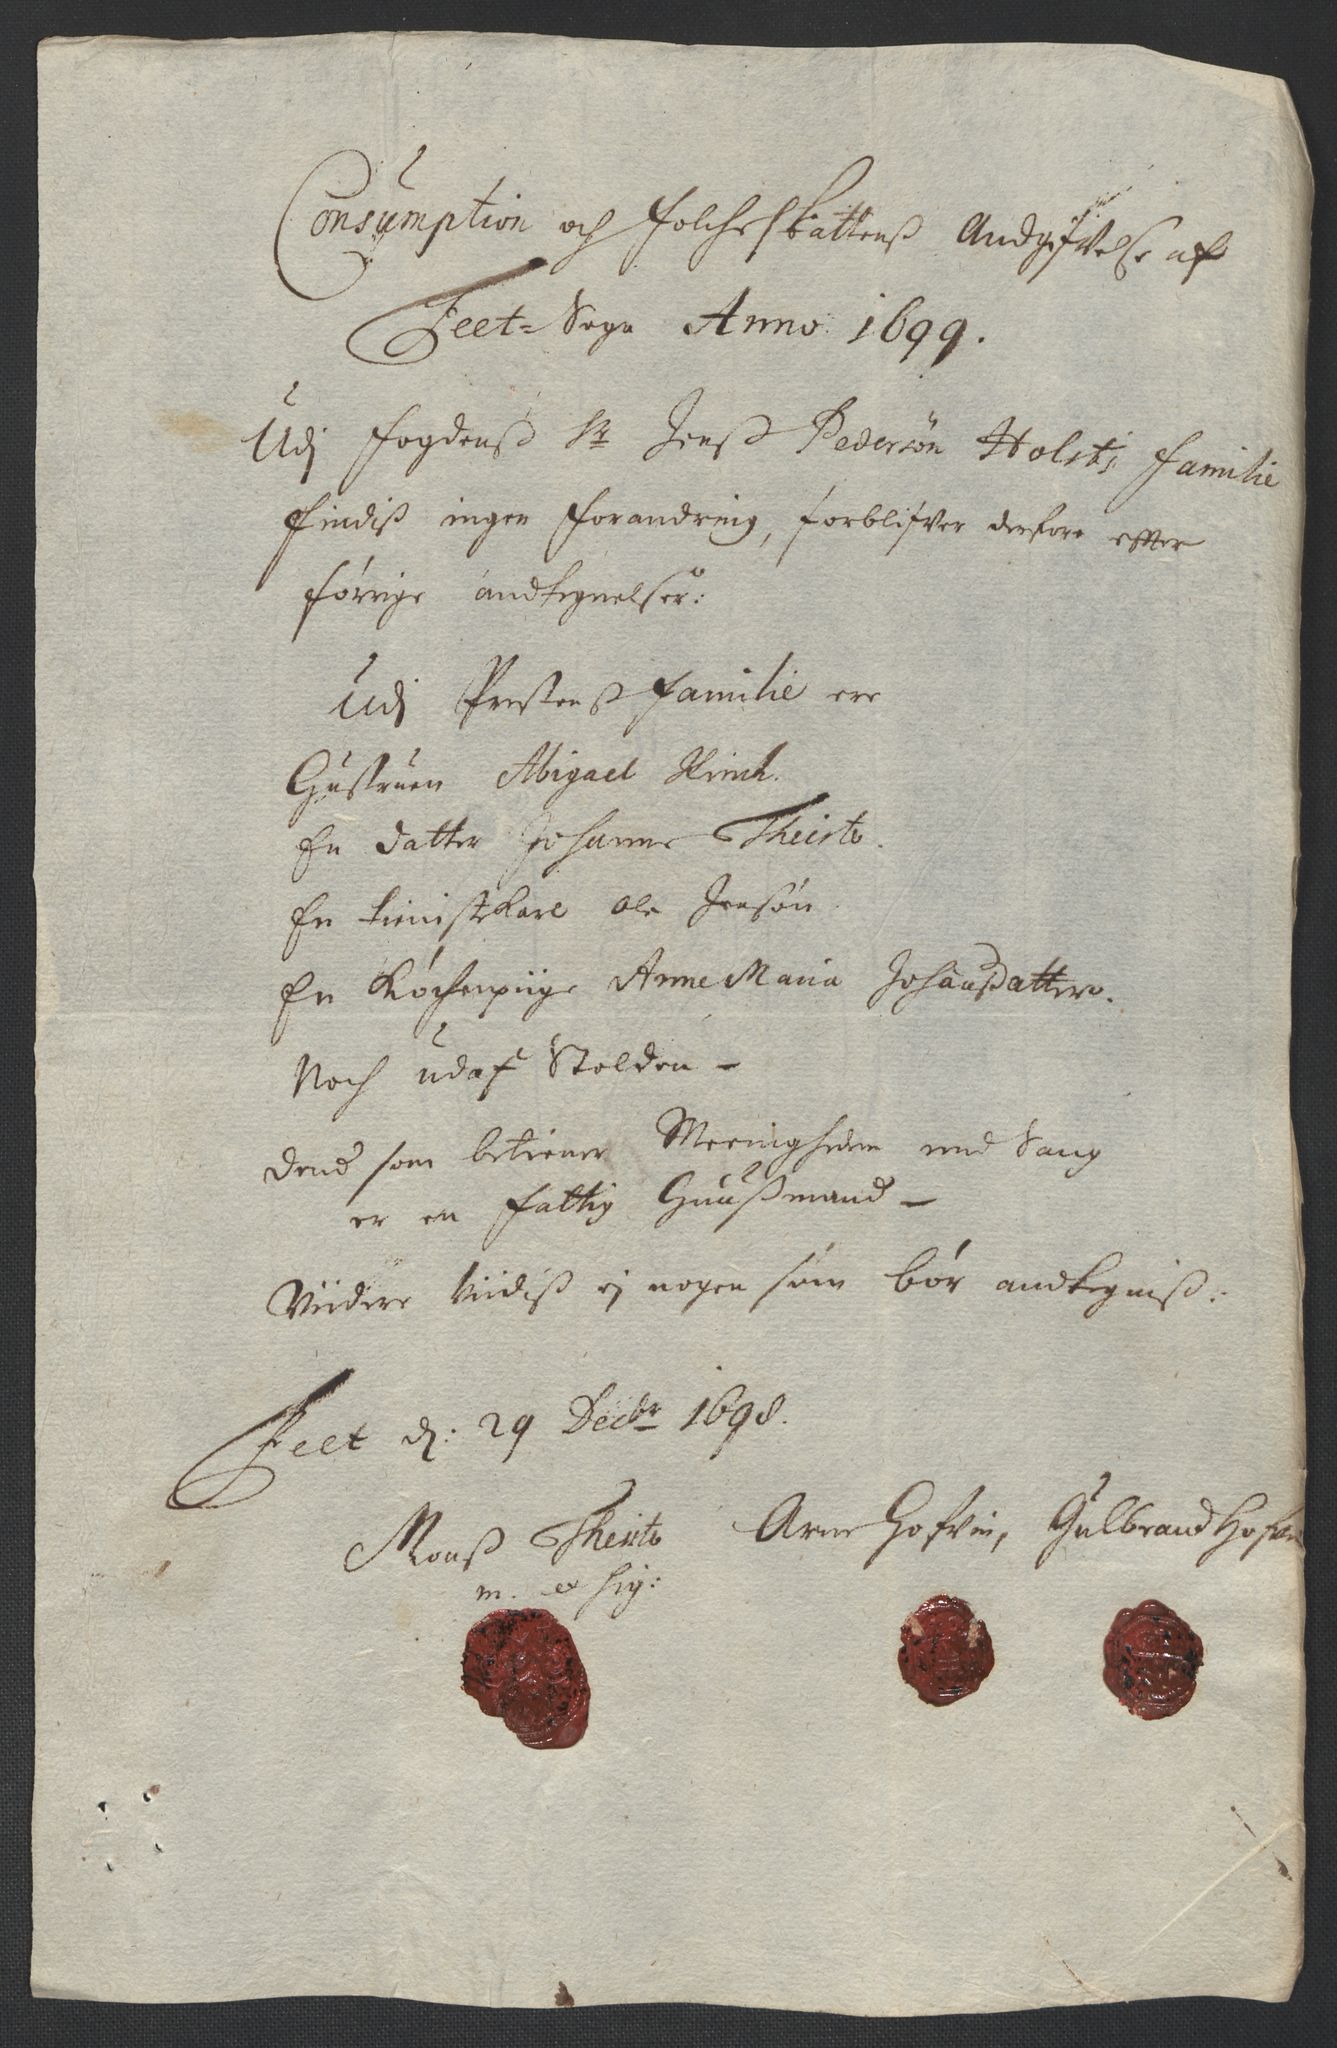 Consumption och Folcheskattens Andgifvelse af
Feet-Sogn Anno 1699.
Udj Fogdenß Sr Jenß Pedersøn Holst's familie
findiß ingen forandring, forblifver derfore effter
forrige andtegnelser:
Udj Prestenß familie ere
Hustruen Abigael
En datter Johanne Theiste.
En tienistekarl Ole Jensøn
En Kochepiige Anne Maria Johanßdatter.
Noch udaf Stolden -
dend som betiener Meenigheden med Sang
er en fattig Huußmand -
Viidere viidiß ej nogen som bør andtegniß:
Feet d: 29 Decbr 1698.
Monß Theiste Arne Hofvin, Gulbrand Hofvin
m. et sig: